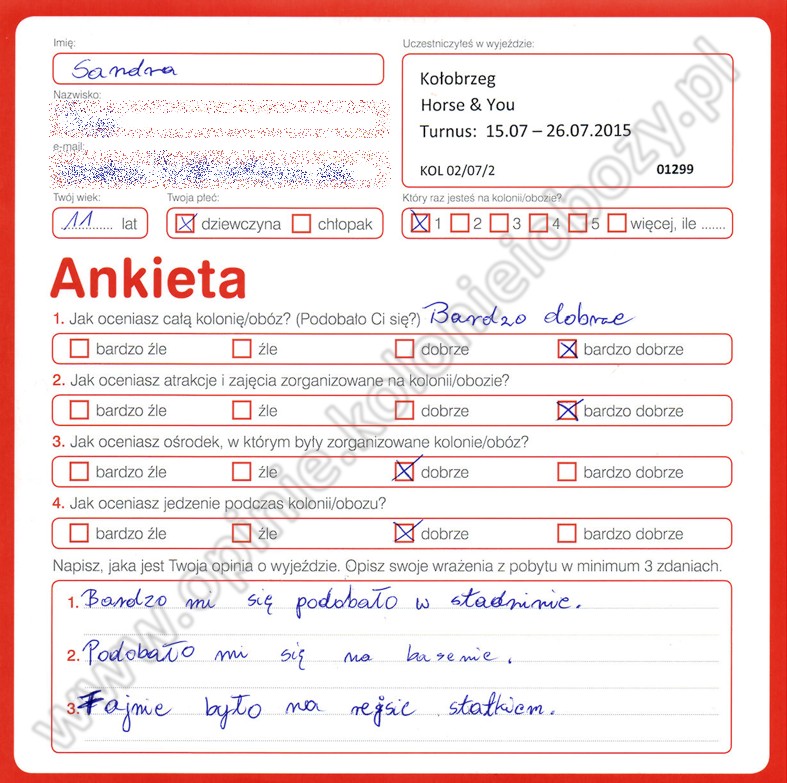 Imię:
Sandra
Nazwisko:
e-mail:
Twój wiek:
11 lat
Twoja płeć:
dziewczyna chłopak
Uczestniczyłeś w wyjeździe:
Kołobrzeg
Horse & You
Turnus: 15.07 – 26.07.2015
KOL 02/07/2 01299
Który raz jesteś na kolonii/obozie?
1 2 3 4 5 więcej, ile .......
Ankieta
1. Jak oceniasz całą kolonię/obóz? (Podobało Ci się?) Bardzo dobrze
bardzo źle źle dobrze bardzo dobrze
2. Jak oceniasz atrakcje i zajęcia zorganizowane na kolonii/obozie?
bardzo źle źle dobrze bardzo dobrze
3. Jak oceniasz ośrodek, w którym były zorganizowane kolonie/obóz?
bardzo źle źle dobrze bardzo dobrze
4. Jak oceniasz jedzenie podczas kolonii/obozu?
bardzo źle źle dobrze bardzo dobrze
Napisz, jaka jest Twoja opinia o wyjeździe. Opisz swoje wrażenia z pobytu w minimum 3 zdaniach.
1. Bardzo mi się podobało w stadninie.
2. Podobało mi się na basenie.
3. Fajnie było na rejsie statkiem.
www.opinie.kolonieiobozy.pl